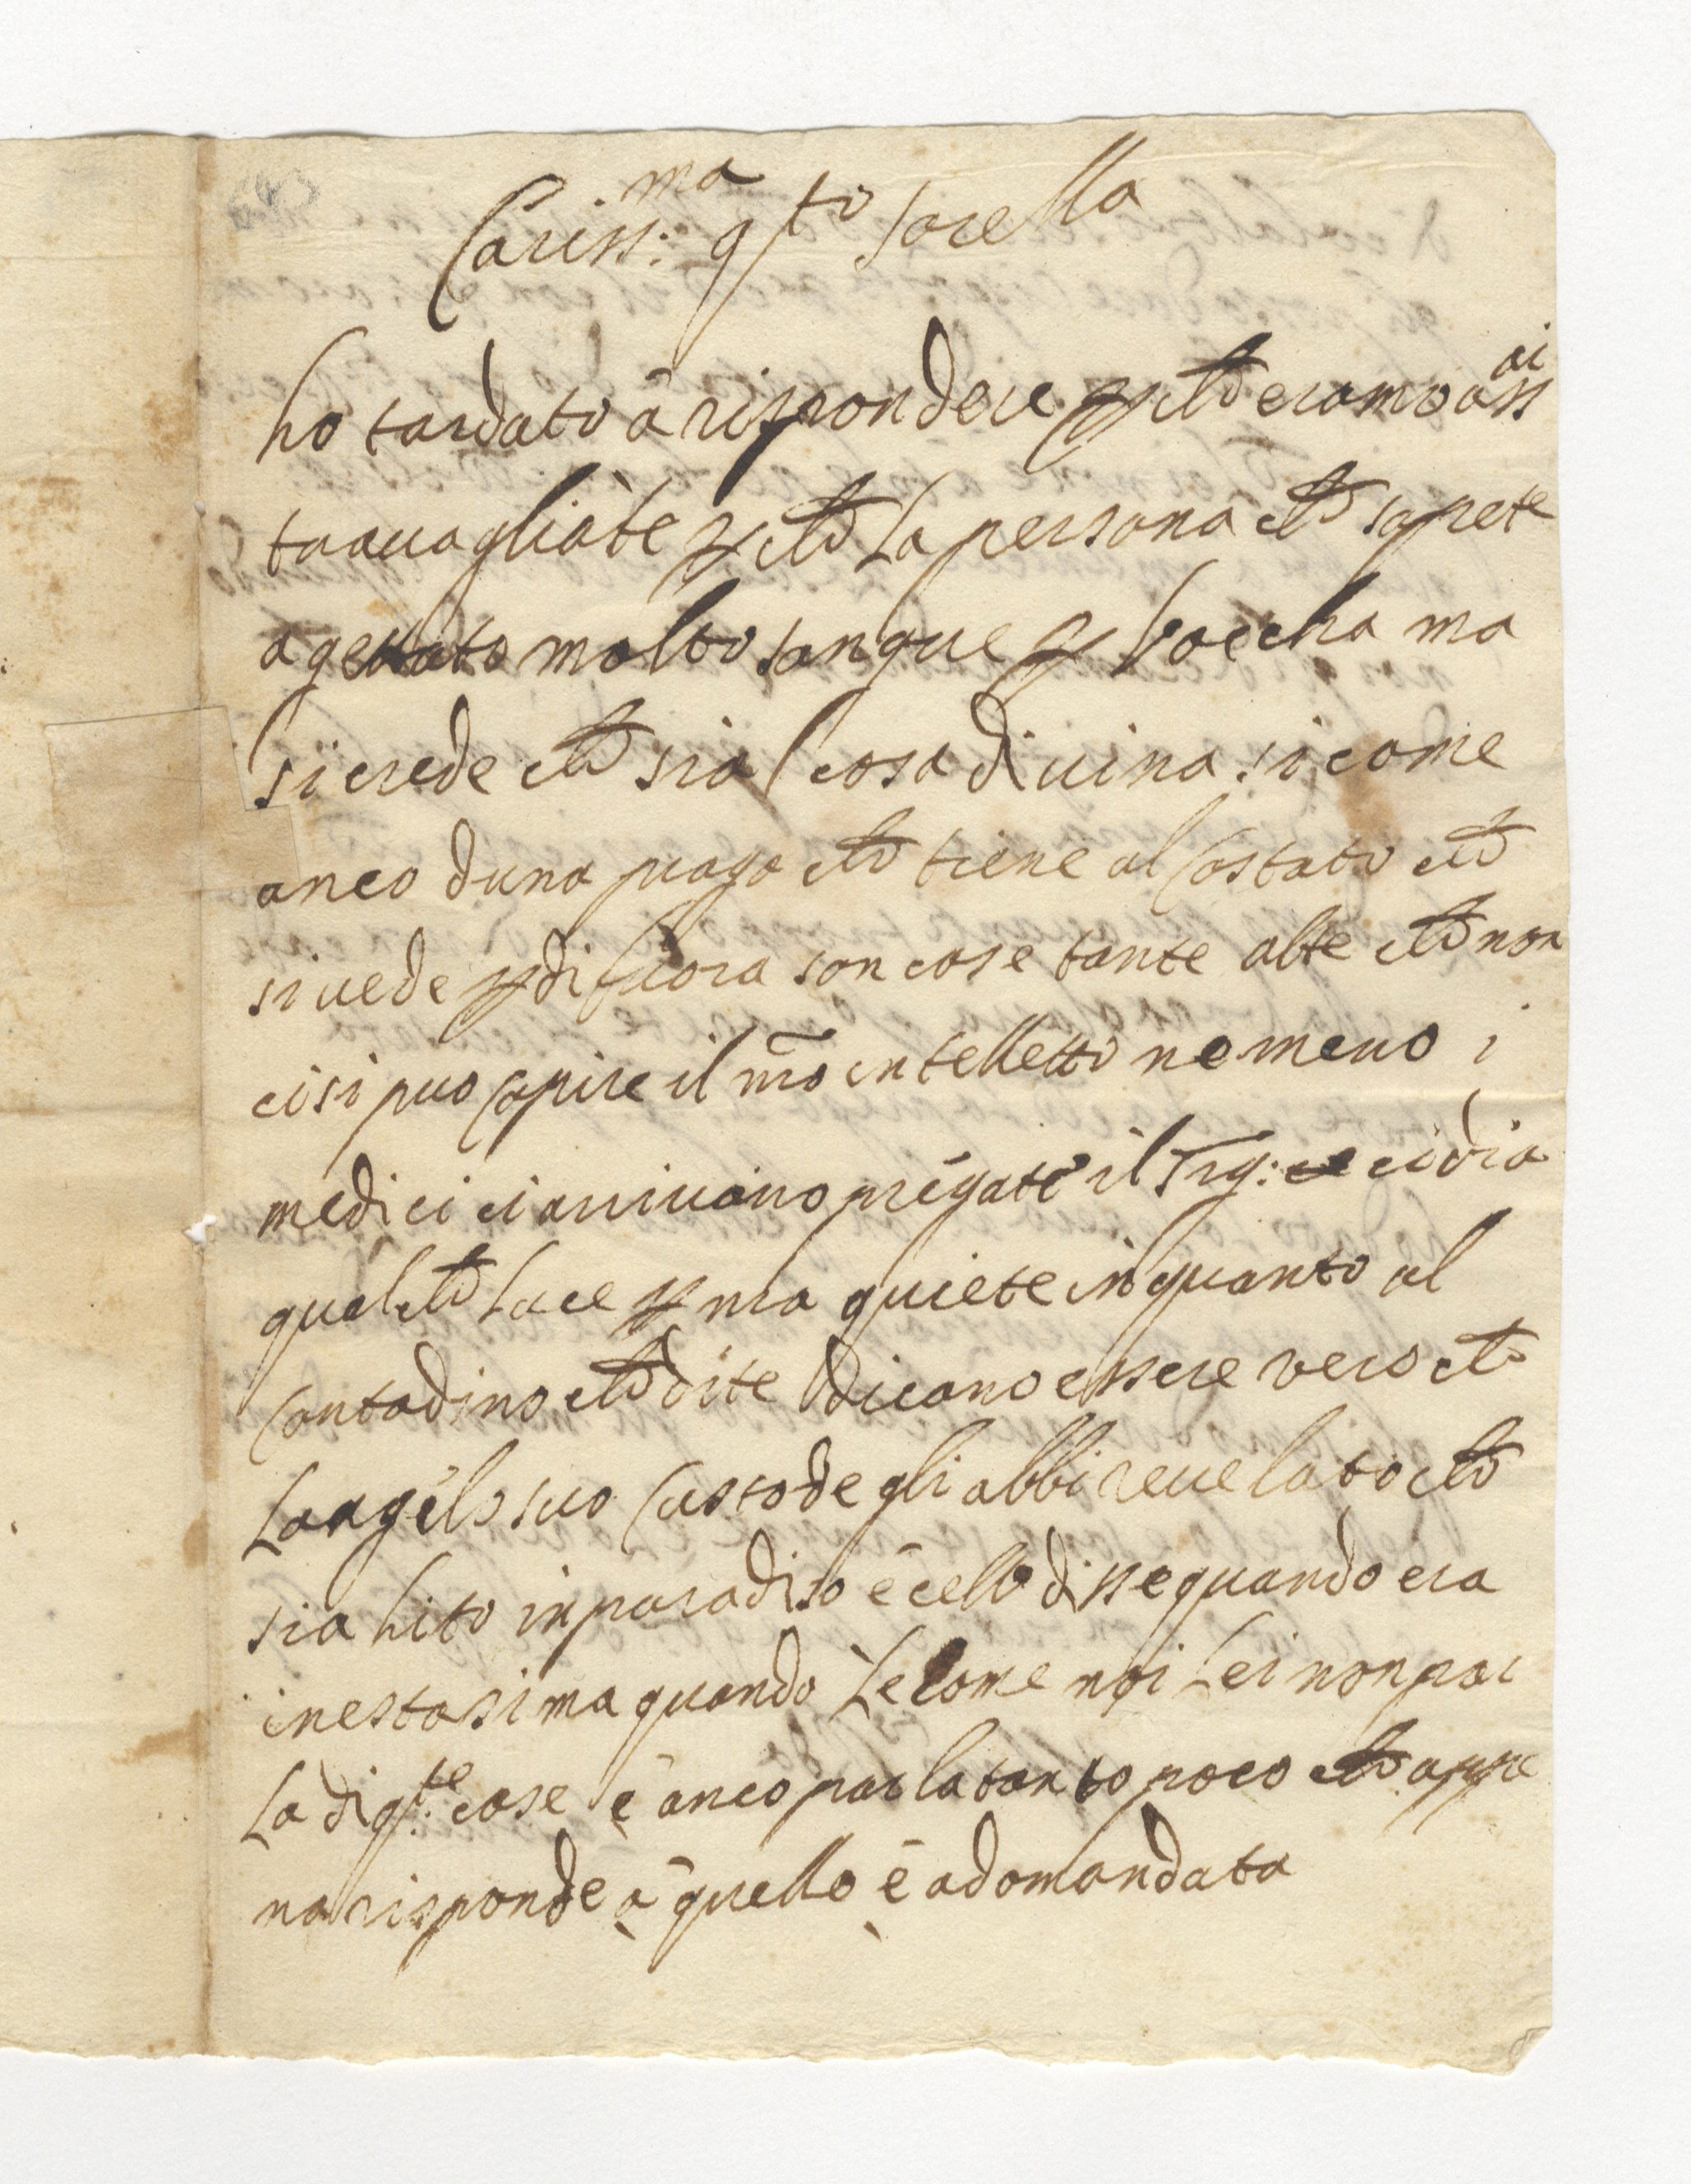 Cariss:ma qto sorella
ho tardato à rispondere p che eramo assai
travagliate p che la persona che sapete
a gettato molto sangue p boccha ma
si crede che sia cosa divina si come
anco duna piaga che tiene al costato che
si vede p di fuora son cose tante alte che non
ci si puo capire il nro intelletto ne meno i
medici ci arrivano pregate il Sig: ci dia
qualche luce p nra quiete in quanto al
contadino che dite dicano essere vero che
Langelo suo custode gli abbi revelato che
sia hito in paradiso è cello disse quando era
in estasi ma quando le come noi lei non par
la di qte cose è anco parla tanto poco che appe
na risponde à quello è adomandata